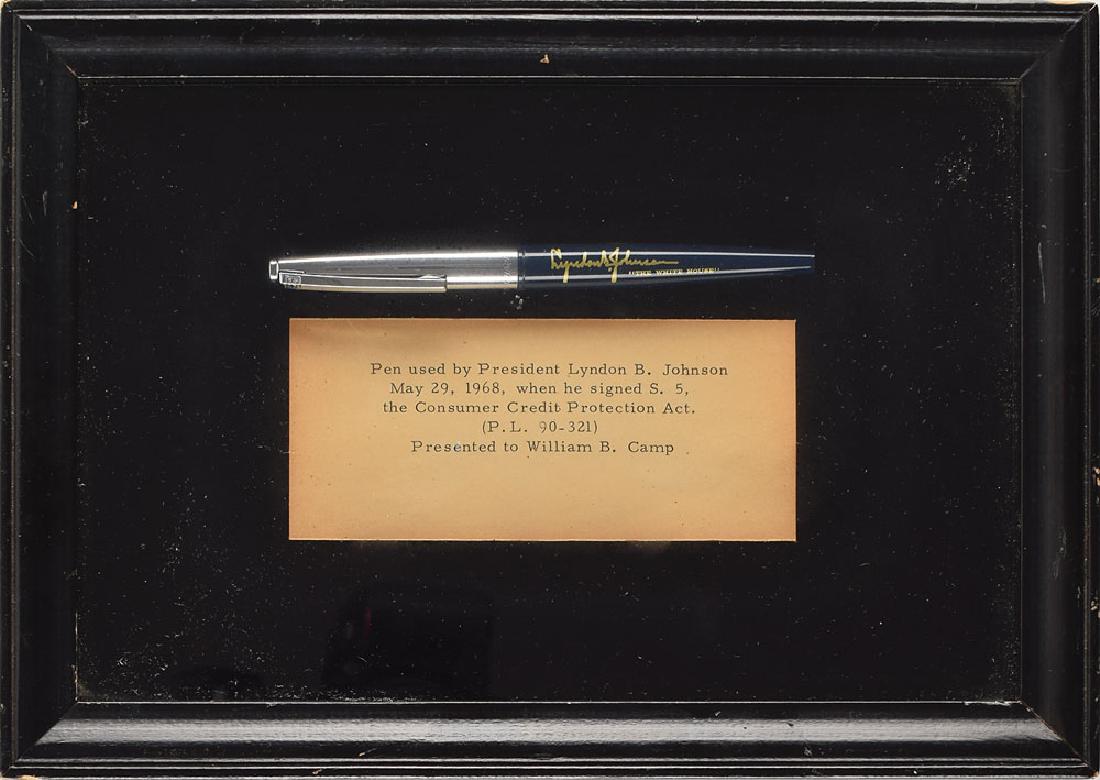 Lyndon B. Johnson
"THE WHITE HOUSE"
Pen used by President Lyndon B. Johnson
May 29, 1968, when he signed S. 5,
the Consumer Credit Protection Act.
(P.L. 90-321)
Presented to William B. Camp